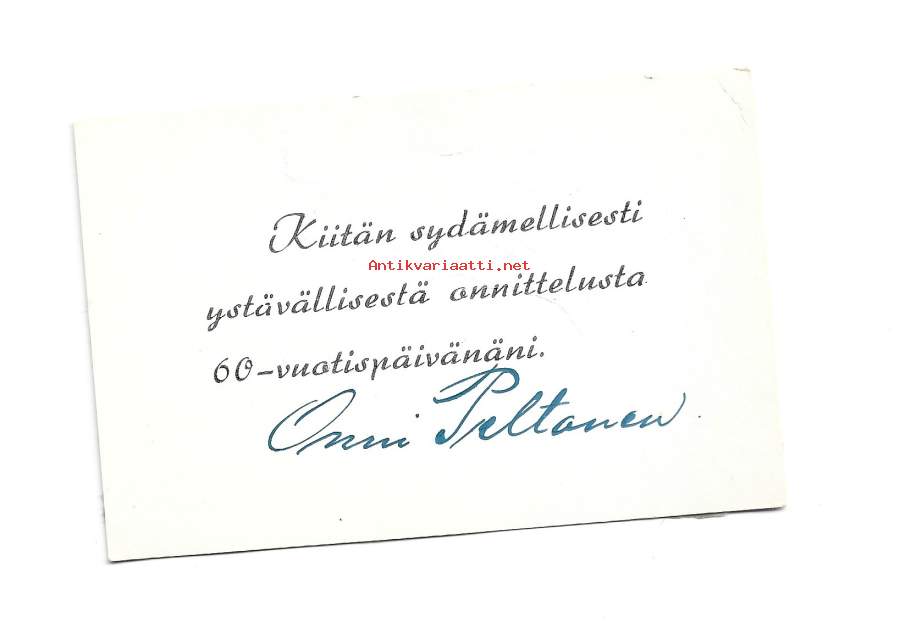 Kiitän sydämellisesti
Antikvariaatti.net
ystävällisestä onnittelusta
60-vuotispäivänäni.
Onni Peltonen